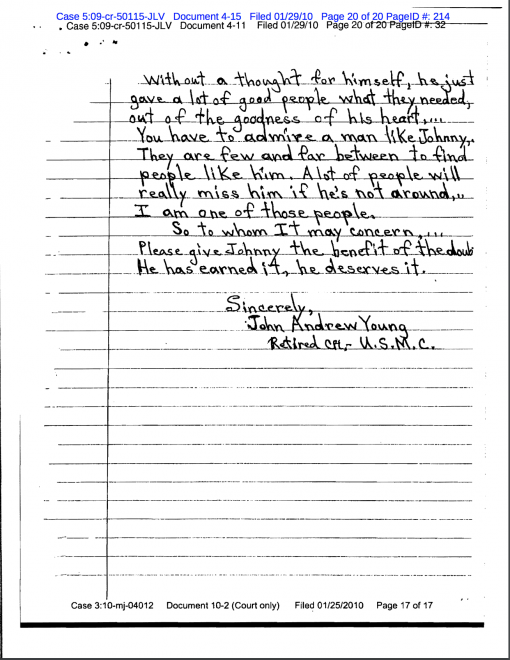 Case 5:09-cr-50115-JLV Document 4-15 Filed 01/29/10 Page 20 of 20 PageID #: 214
Case 5:09-cr-50115-JLV Document 4-11 Filed 01/29/10 Page 20 of 20 PageID #: 32
Without a thought for himself, he just
gave a lot of good people what they needed,
out of the goodness of his heart,...
You have to admire a man like Johnny..
They are few and far between to find
people like him. A lot of people will
really miss him if he's not around,..
I am one of those people.
So to whom It may concern,...
Please give Johnny the benefit of the doub
He has earned it, he deserves it.
Sincerely,
John Andrew Young
Retired Cpl,- U.S.M.C.
Case 3:10-mj-04012 Document 10-2 (Court only) Filed 01/25/2010 Page 17 of 17